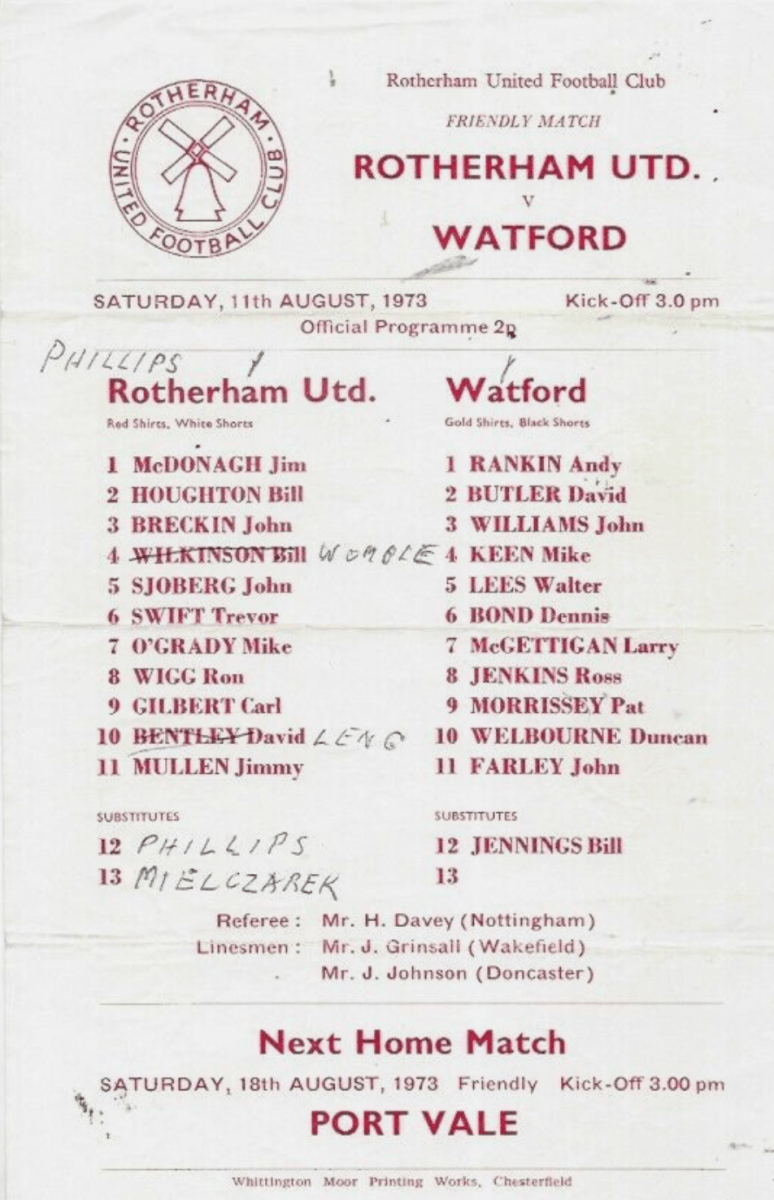 ROTHERHAM UNITED FOOTBALL CLUB
Rotherham United Football Club
FRIENDLY MATCH
ROTHERHAM UTD.
v
WATFORD
SATURDAY, 11th AUGUST, 1973 Kick-Off 3.0 pm
Official Programme 2p
PHILLIPS 1 1
Rotherham Utd. Watford
Red Shirts, White Shorts Gold Shirts, Black Shorts
1 McDONAGH Jim 1 RANKIN Andy
2 HOUGHTON Bill 2 BUTLER David
3 BRECKIN John 3 WILLIAMS John
4 WILKINSON Bill WOMBLE 4 KEEN Mike
5 SJOBERG John 5 LEES Walter
6 SWIFT Trevor 6 BOND Dennis
7 O'GRADY Mike 7 McGETTIGAN Larry
8 WIGG Ron 8 JENKINS Ross
9 GILBERT Carl 9 MORRISSEY Pat
10 BENTLEY David LENG 10 WELBOURNE Duncan
11 MULLEN Jimmy 11 FARLEY John
SUBSTITUTES SUBSTITUTES
12 PHILLIPS 12 JENNINGS Bill
13 MIELCZAREK 13
Referee : Mr. H. Davey (Nottingham)
Linesmen : Mr. J. Grinsall (Wakefield)
Mr. J. Johnson (Doncaster)
Next Home Match
SATURDAY, 18th AUGUST, 1973 Friendly Kick-Off 3.00 pm
PORT VALE
Whittington Moor Printing Works, Chesterfield